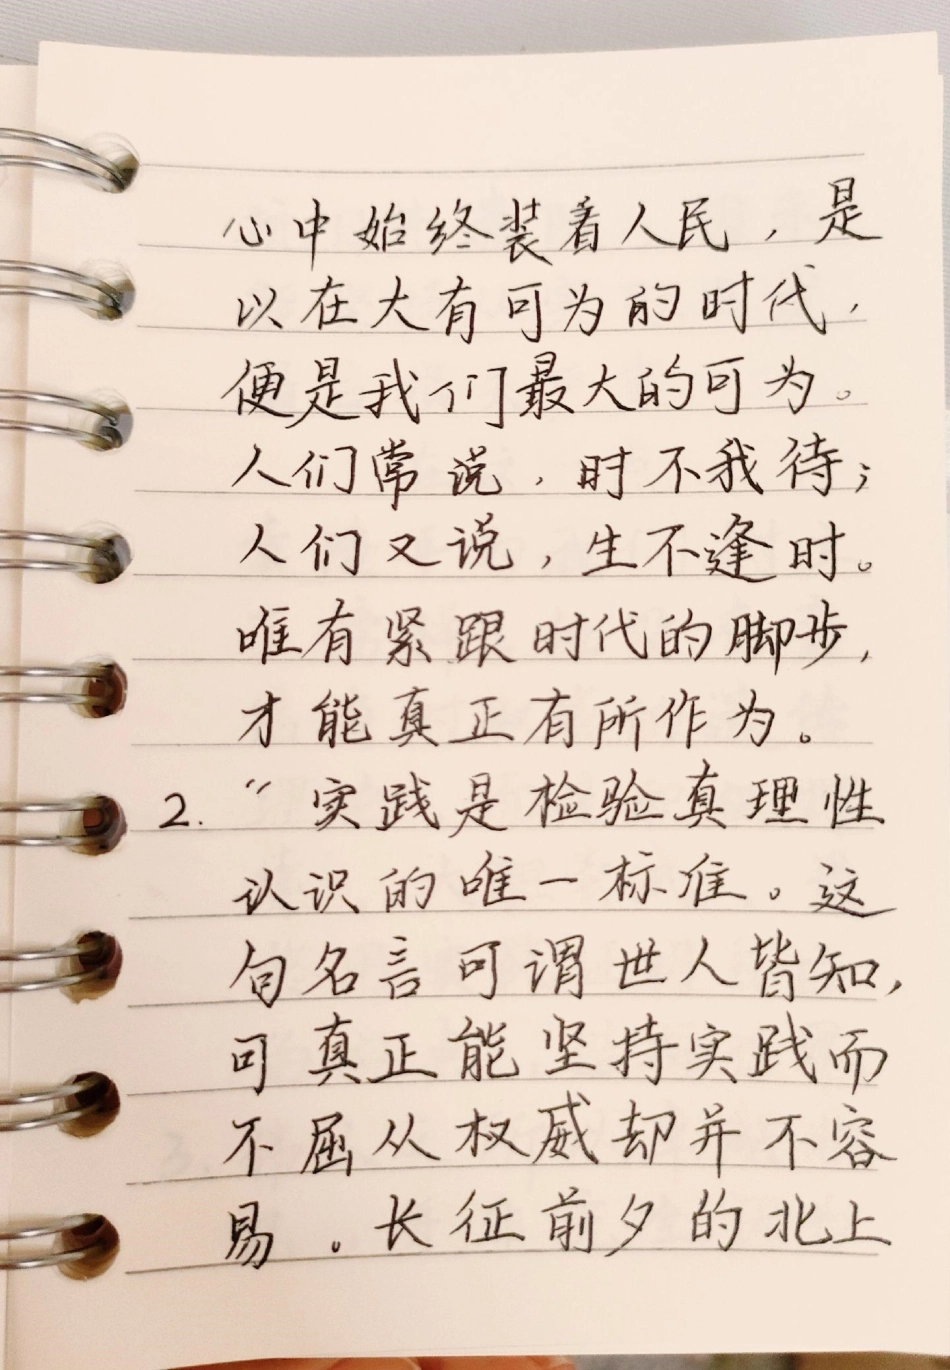 心中始终装着人民，是
以在大有可为的时代，
便是我们最大的可为。
人们常说，时不我待；
人们又说，生不逢时。
唯有紧跟时代的脚步，
才能真正有所作为。
2. “实践是检验真理性
认识的唯一标准。这
句名言可谓世人皆知，
可真正能坚持实践而
不屈从权威却并不容
易。长征前夕的北上